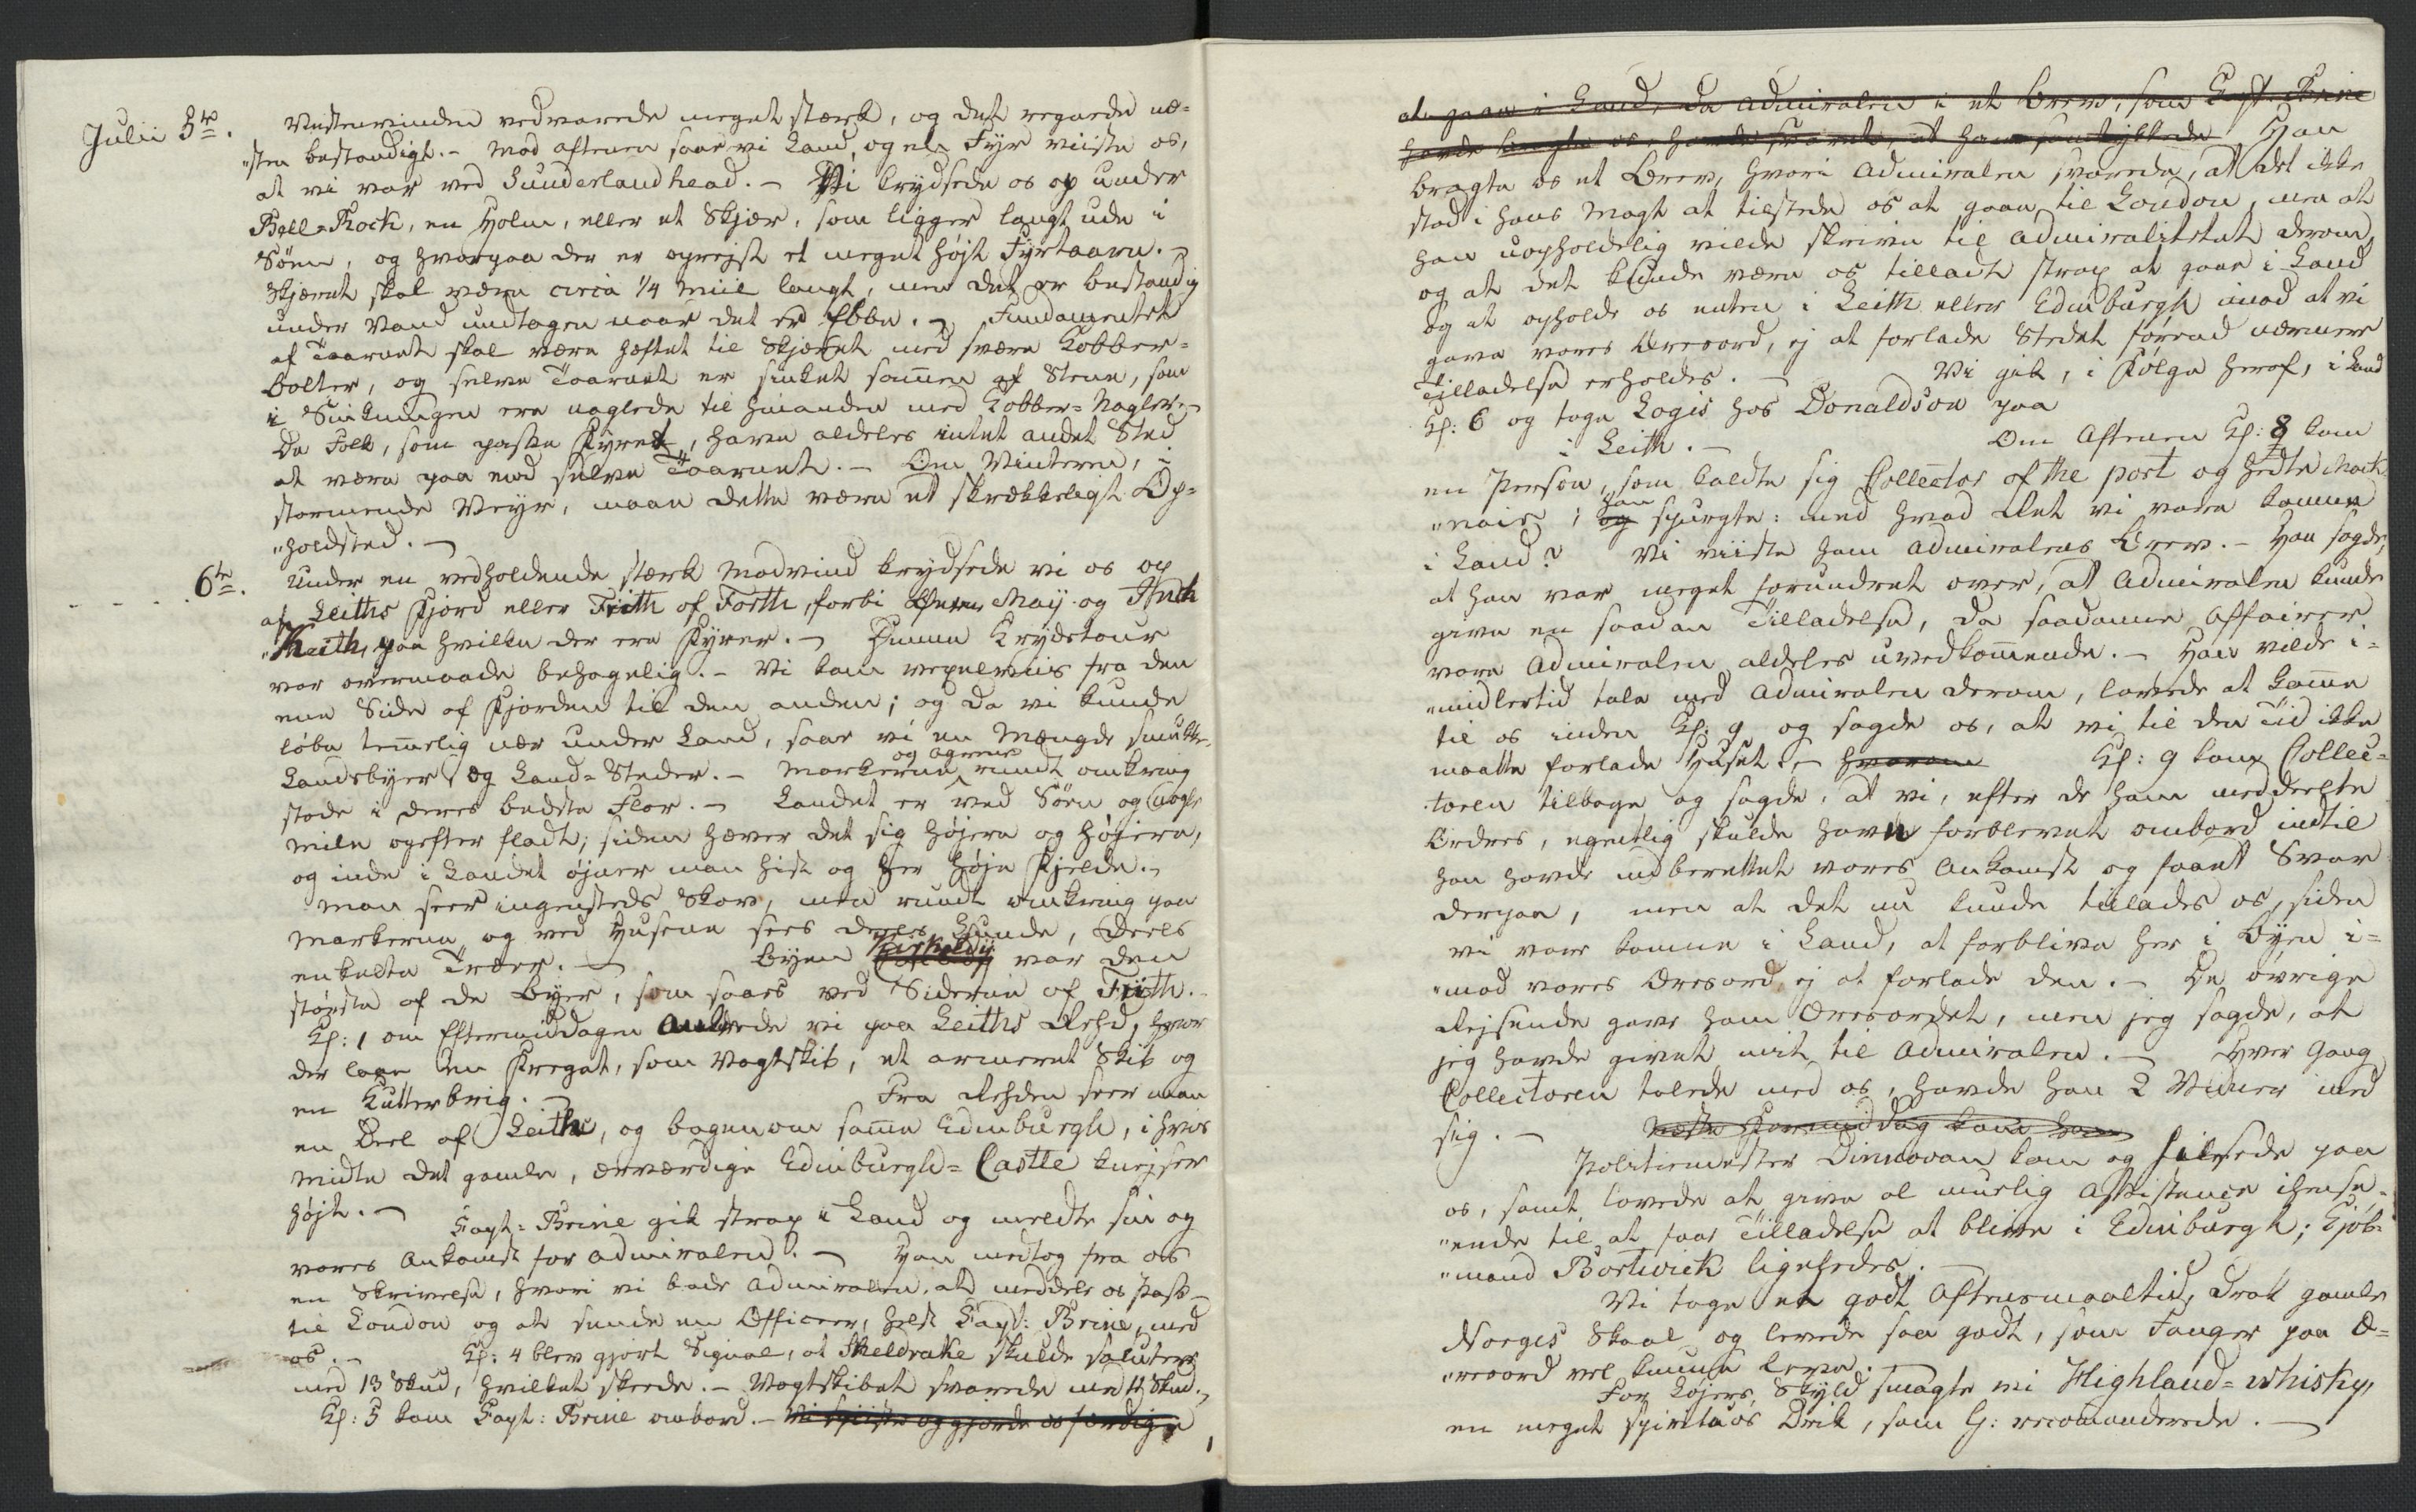 Julii 5te. Vestenvinden vedvarede meget stærk, og det regnede næ-
"sten bestandigt. – Mod Aftenen saae vi Land, og een Fyr viiste os,
at vi var ved Sunderlandhead. – Vi krydsede os op under
Bell-Rock, en Holm, eller et Skjær, som ligger langt ude i
Söen, og hvorpaa der er oprejst et meget højt Fyrtaarn. –
Skjæret skal være circa 1/4 Miil langt, men det er bestandig
under Vand undtagen naar det er Ebbe. – Fundamentet
af Taarnet skal være hæftet til Skjæret med svære Kobber-
bolter, og selve Taarnet er sinket sammen af Steene, som
i Sinkningen ere naglede til hinanden med Kobber-Nagler. –
De Folk, som passe Fyret, have aldeles intet andet Sted
at være paa end selve Taarnet. – Om Vinteren, i
stormende Veyr, maae dette være et skrækkeligt Op-
"holdsted. –
6te. Under en vedholdende stærk Modvind krydsede vi os op
af Leiths Fjord eller Frith of Forth, forbi Øerne May og Inch
"Keith, paa hvilke der ere Fyrer. – Denne Krydstour
var overmaade behagelig. – Vi kom vexelviis fra den
ene Side af Fjorden til den anden; og da vi kunde
löbe temmelig nær under Land, saae vi en Mængde smukke
Landsbyer og Land-Steder. – Markerne og Agrene rundt omkring
stode i deres bedste Flor. – Landet er ved Söen og nogle
Mile opefter fladt; siden hæver det sig højere og højere,
og inde i Landet øjner man hist og her høje Fjelde. –
Man seer ingensteds Skov, men rundt omkring paa
Markerne og ved Husene sees deels Lunde, deels
enkelte Træer. – Byen Kirkaldy var den
största af de Byer, som saaes ved Siderne af Frith. –
Kl: 1 om Eftermiddagen ankrede vi paa Leiths Rehd, hvor
der laae en Fregat, som Vagtskib, et armeret Skib og
en Kutterbrig. – Fra Rehden seer man
en Deel af Leith, og bagenom samme Edinburgh, i hvis
Midte det gamle, ærværdige Edinburgh-Castle knejser
højt. –
Capt: Brine gik strax i Land og meldte sin og
vores Ankomst for Admiralen. – Han medtog fra os
en Skrivelse, hvori vi bade Admiralen, at meddele os Pass
til London og at sende en Officeer, helst Capt: Brine, med
os. – Kl: 4 blev gjort Signal, at Sheldrake skulde salutere
med 13 Skud, hvilket skeede. – Vagtskibet svarede med 11 Skud. –
Kl: 5 kom Capt: Brine ombord. – Vi spiiste og gjorde os færdige
at gaae i Land, da Admiralen i et Brev, som Capt Brine
havde bragt os, havde svaret, at han samtykkede Han
bragte os et Brev, hvori Admiralen svarede, at det ikke
stod i hans Magt at tilstede os at gaae til London, men at
han uopholdelig vilde skrive til Admiralitetet derom,
og at det kunde være os tilladt strax at gaae i Land
og at opholde os enten i Leith eller Edinburgh imod at vi
gave vores Æresord, ej at forlade Stedet förend nærmere
Tilladelse erholdes. – Vi gik, i Fölge heraf, i Land
Kl: 6 og toge Logis hos Donaldson paa
i Leith. – Om Aftenen Kl: 8 kom
en Person, som kaldte sig Collector of the port og hedte Mack
"nair; og han spurgte: med hvad Ret vi vare komne
i Land? Vi viiste ham Admiralens Brev. – Han sagde,
at han var meget forundret over, at Admiralen kunde
give en saadan Tilladelse, da saadanne Affairer
vare Admiralen aldeles uvedkommende. – Han vilde i-
"midlertid tale med Admiralen derom, lovede at komme
til os inden Kl: 9 og sagde os, at vi til den Tid ikke
maatte forlade Huset. – hvorom Kl: 9 kom Collec-
toren tilbage og sagde, at vi, efter de ham meddeelte
Ordres, egentlig skulde have forblevet ombord indtil
han havde indberettet vores Ankomst og faaet Svar
derpaa, men at det nu kunde tillades os, siden
vi vare komne i Land, at forblive her i Byen i-
"mod vores Æresord, ej at forlade den. – De övrige
Rejsende gave ham Æresordet, men jeg sagde, at
jeg havde givet mit til Admiralen. – Hver Gang
Collectoren talede med os, havde han 2 Vidner med
sig. – Næste Formiddag kom han
Politiemester Dinnovan kom og hilsede paa
os, samt lovede at give al muelig Assistence ihense-
"ende til at faae Tilladelse at blive i Edinburgh; Kjöb-
"mand Bortwick ligeledes. –
Vi toge et godt Aftensmaaltid, drak gamle
Norges Skaal og levede saa godt, som Fanger paa Æ-
"resord vel kunne leve. –
For Løjers Skyld smagte vi Highland-whisky,
en meget spirituøs Drik, som G: recomanderede. –